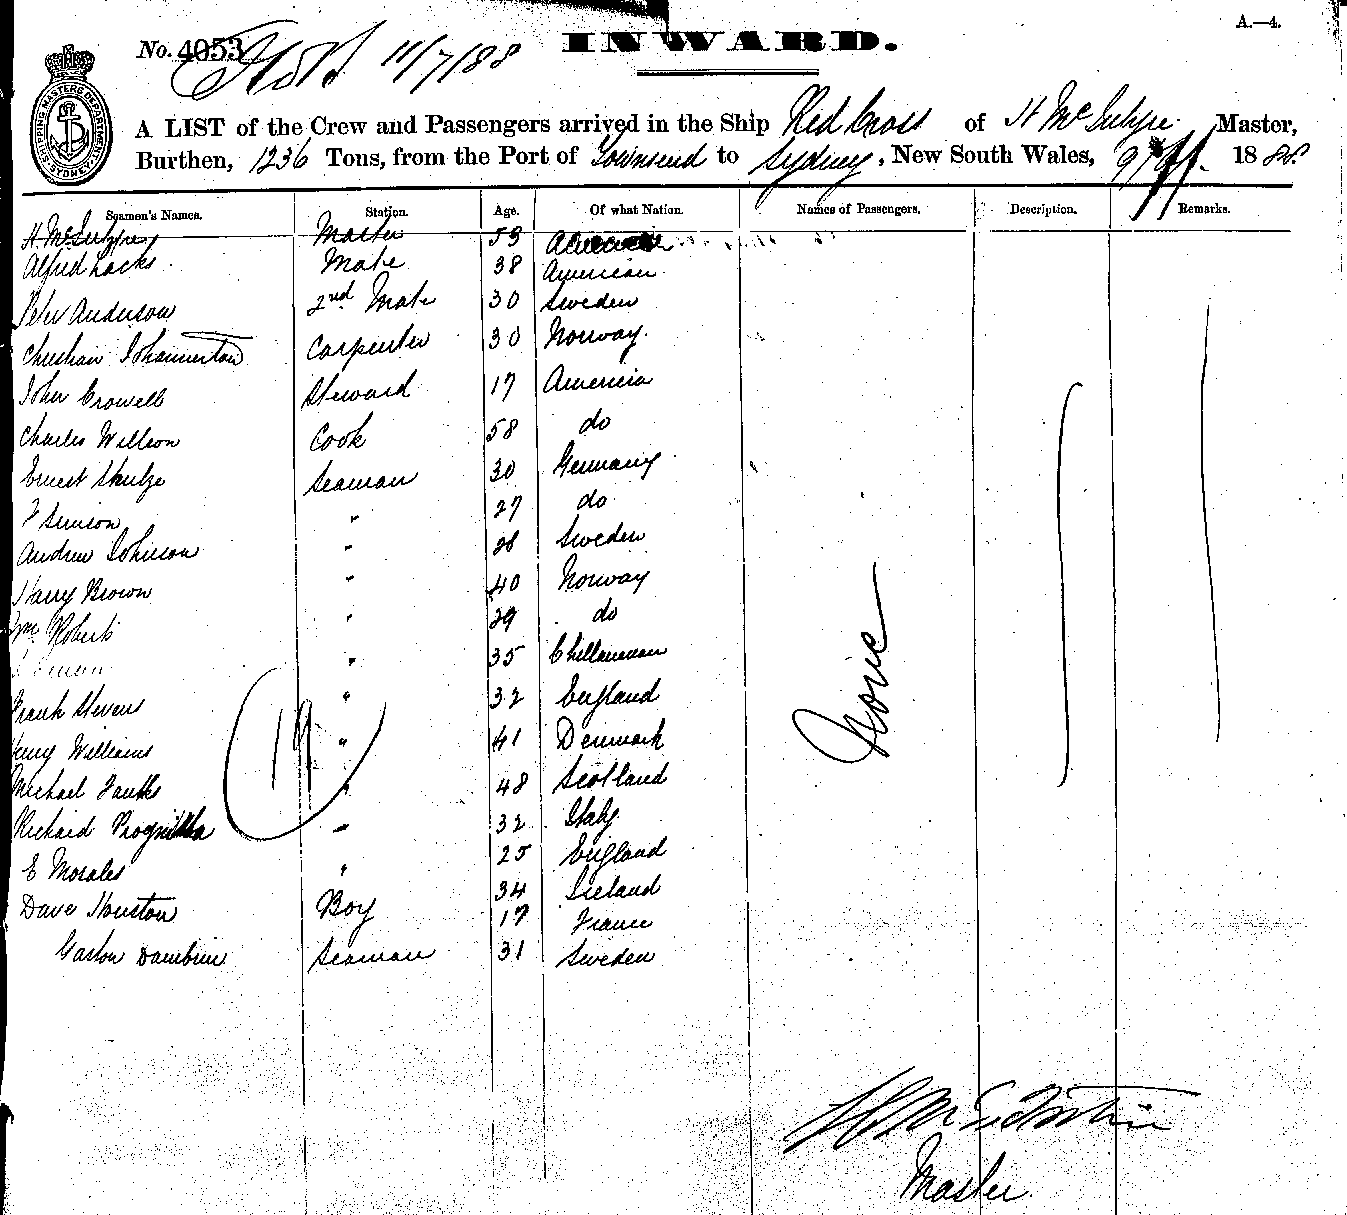 A.—4.
No. 4053 11/7/88 INWARD.
SHIPPING MASTERS DEPARTMENT SYDNEY
A LIST of the Crew and Passengers arrived in the Ship Red Cross of H Mc Master,
Burthen, 1236 Tons, from the Port of Townsend to Sydney, New South Wales, 1888
Seamen's Names. Station. Age. Of what Nation. Names of Passengers. Description. Remarks.
H Mc Master 53
Alfred Lacks Mate 38 American
Peter Anderson 2nd Mate 30 Sweden
Carpenter 30 Norway.
John Crowell Steward 17 America
Charles Willson Cook 58 do
Ernest Shulze Seaman 30 Germany
F " 27 do
Andrew Johnson " 28 Sweden
Harry Brown " 40 Norway
Wm Roberts " 29 do
" 35
Frank Stevens " 32 England
Williams " 41 Denmark
Michael " 48 Scotland
Richard " 32 Italy
E Morales " 25 England
Dave Houston Boy 34 Ireland
17 France
Gaston Dambrin Seaman 31 Sweden
19
None
Master